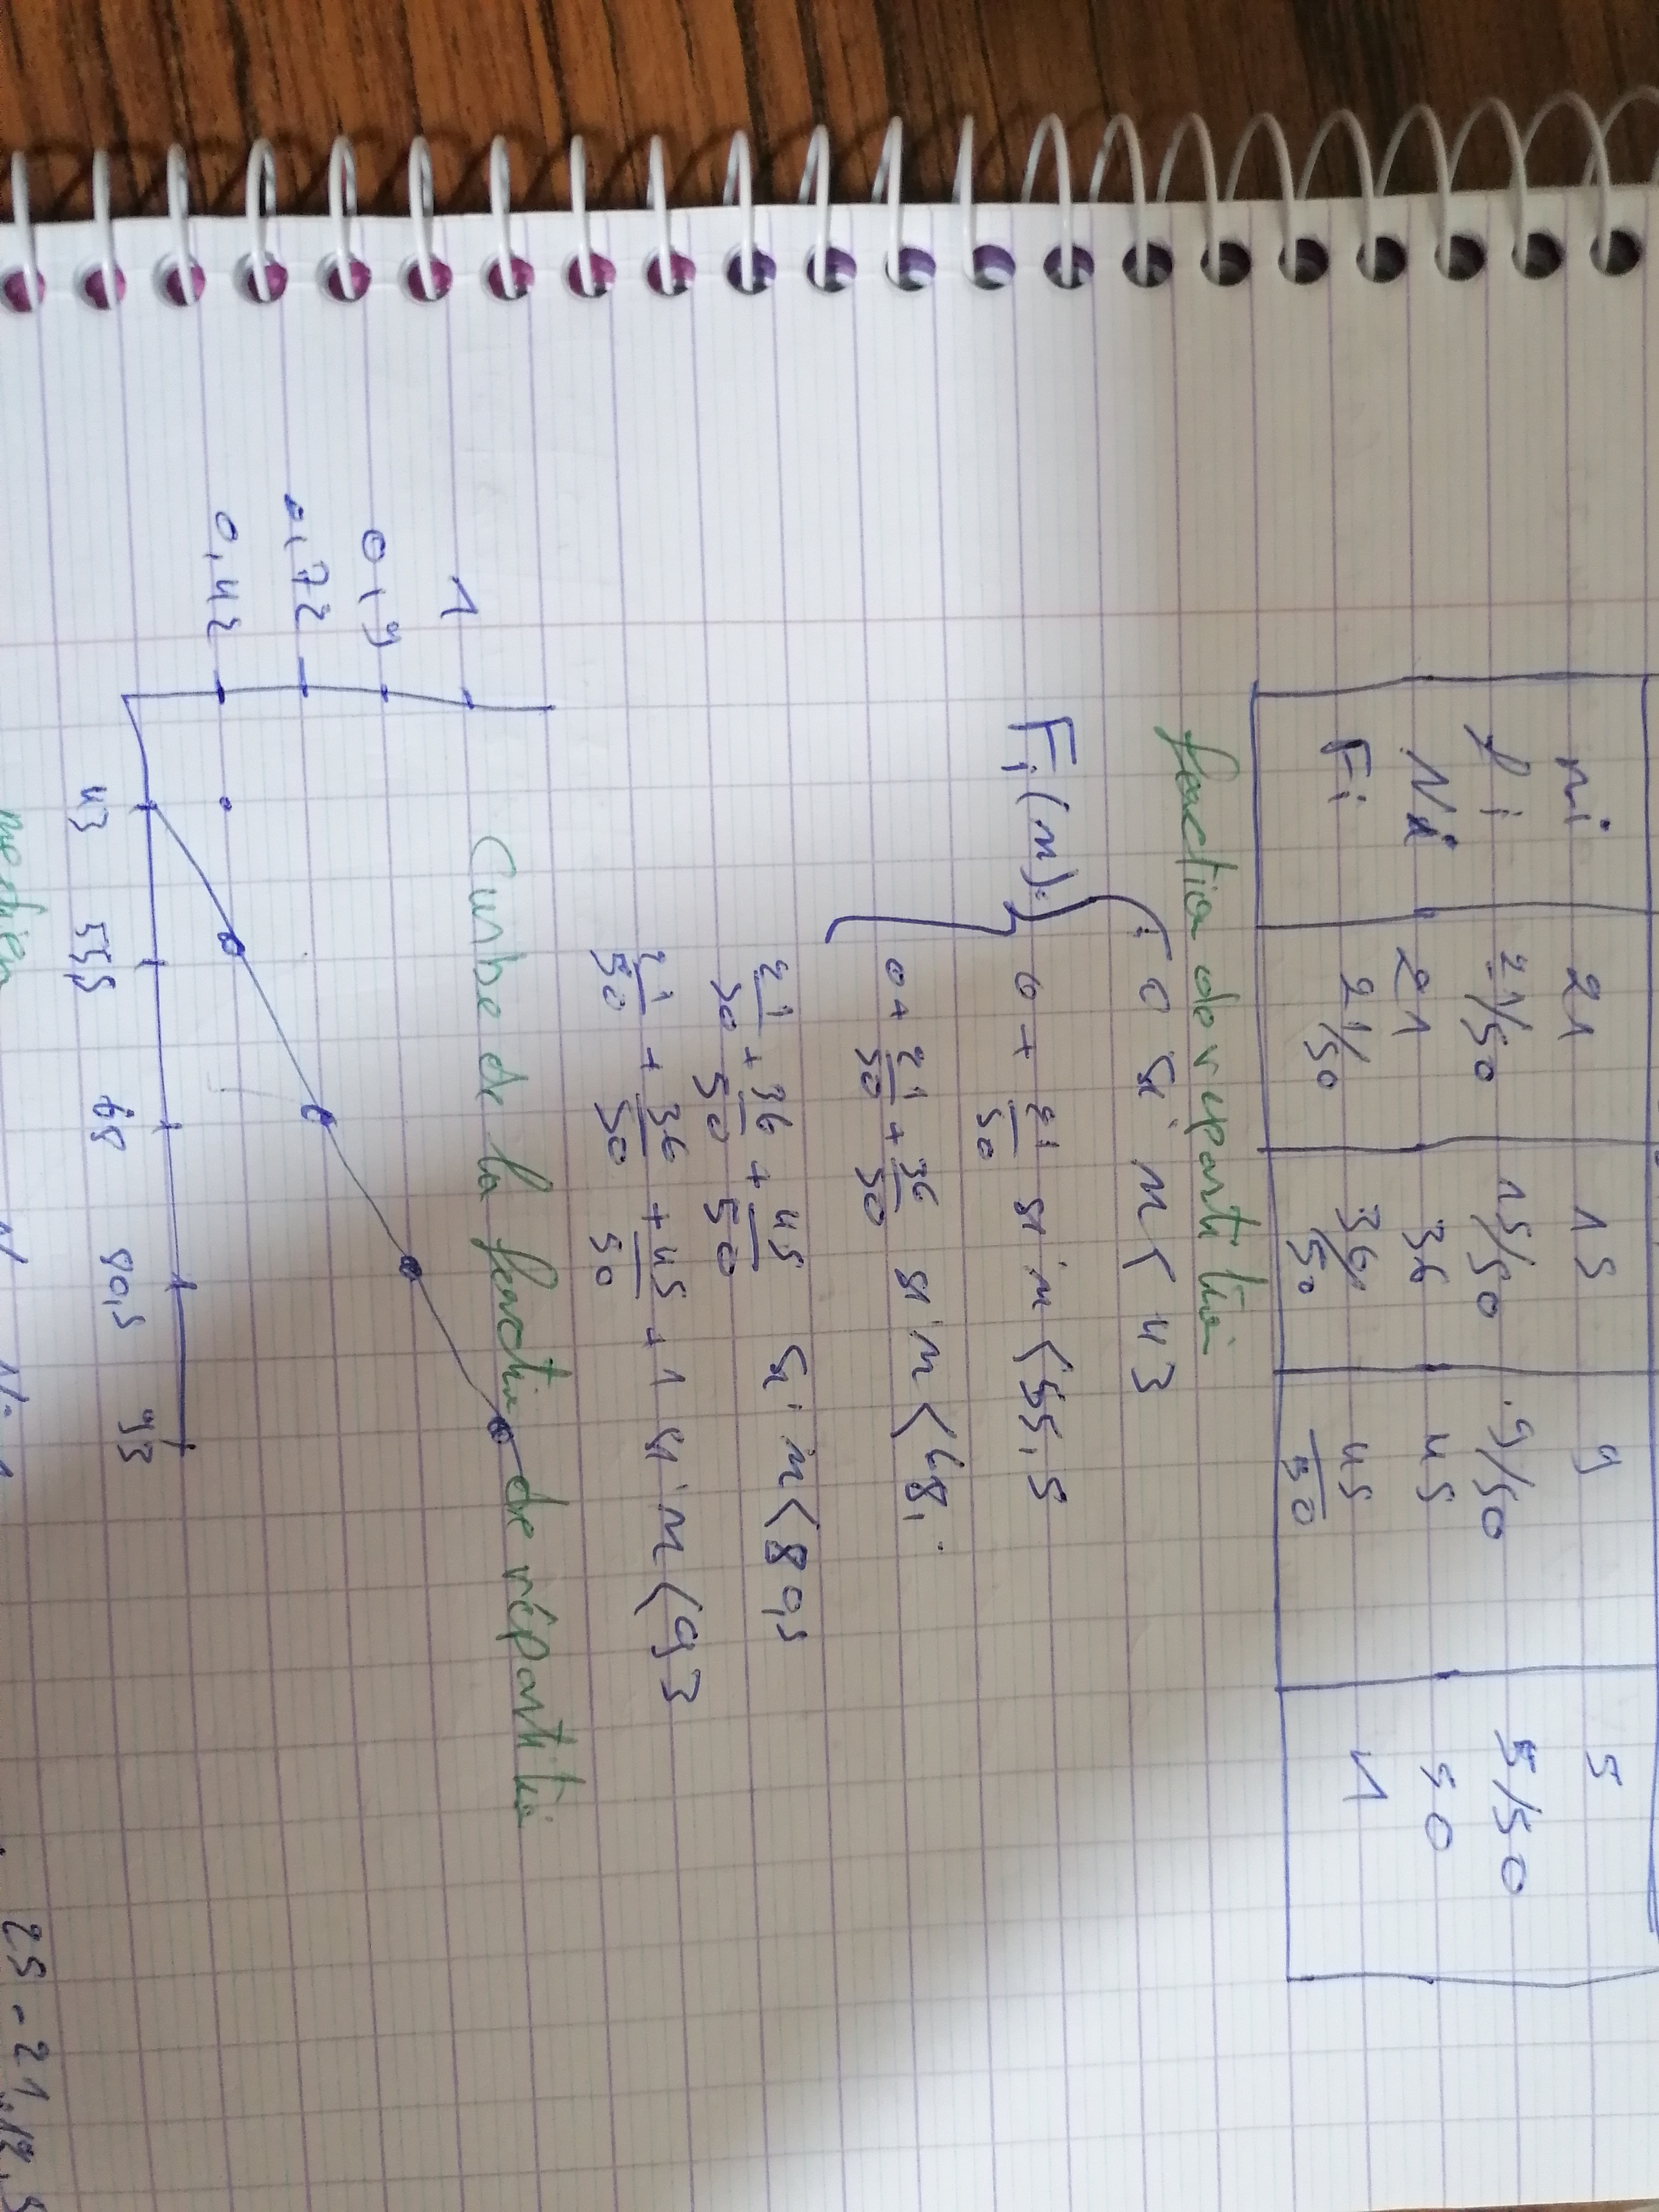 ni 21 15 9 5
fi 21/50 15/50 9/50 5/50
Ni 21 36 45 50
Fi 21/50 36/50 45/50 1
fonction de répartition
F_i(x) = { 0 si x < 43
0 + 21/50 si x < 55,5
0 + 21/50 + 36/50 si x < 68
21/50 + 36/50 + 45/50 si x < 80,5
21/50 + 36/50 + 45/50 + 1 si x < 93
Curbe de la fonction de répartition
1
0,9
0,72
0,42
43 55,5 68 80,5 93
25 - 21